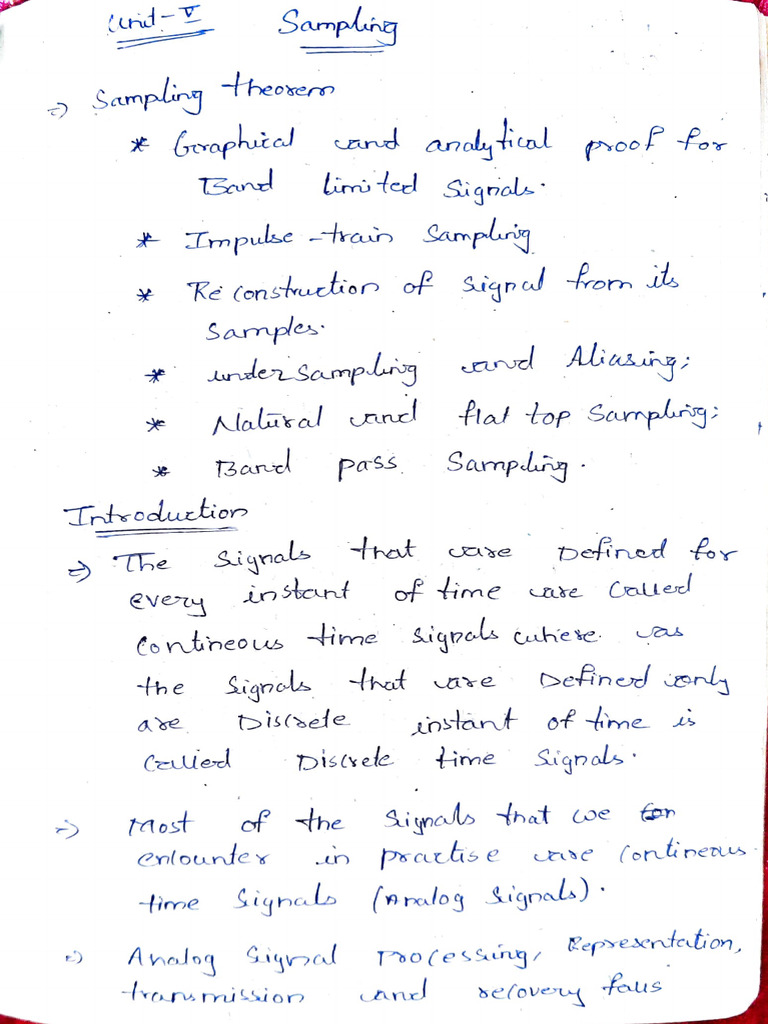 Unit-V Sampling
=> Sampling theorem
* Graphical and analytical proof for
Band limited Signals.
* Impulse-train Sampling
* Reconstruction of signal from its
Samples.
* undersampling and Aliasing;
* Natural and flat top Sampling;
* Band pass Sampling.
Introduction
=> The Signals that are Defined for
every instant of time are Called
Contineous time signals where as
the Signals that are Defined only
are Discrete instant of time is
Called Discrete time Signals.
=> Most of the Signals that we
encounter in practise are Contineous
time Signals (Analog Signals).
=> Analog Signal Processing, Representation,
transmission and recovery falls